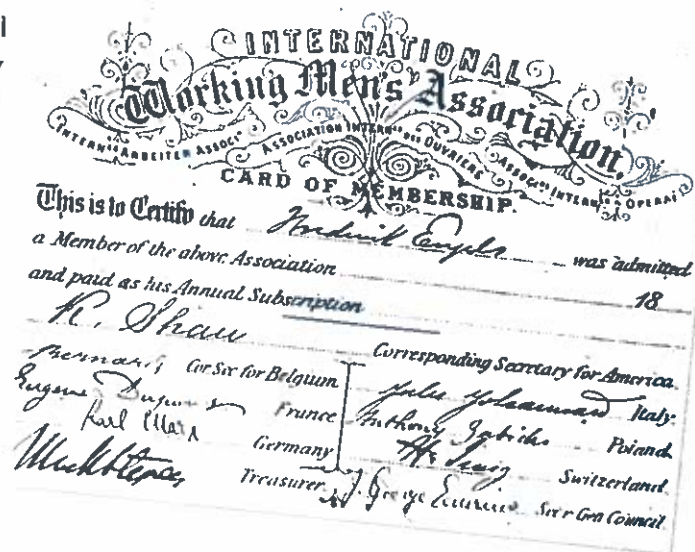 INTERNATIONAL
Working Men's Association.
INTERN^LE ARBEITER ASSOC^N ASSOCIATION INTERN^LE DES OUVRIERS ASSOC^NE INTERN^LE OPERAI
CARD OF MEMBERSHIP.
This is to Certify that Frederick Engels was admitted
a Member of the above Association 18
and paid as his Annual Subscription
R. Shaw Corresponding Secretary for America.
Bernard Cor Sec for Belgium Italy.
Eugene Dupont France Anthony Zabicki Poland
Karl Marx Germany H. Jung Switzerland.
Treasurer J. George Eccarius Secr Gen Council.